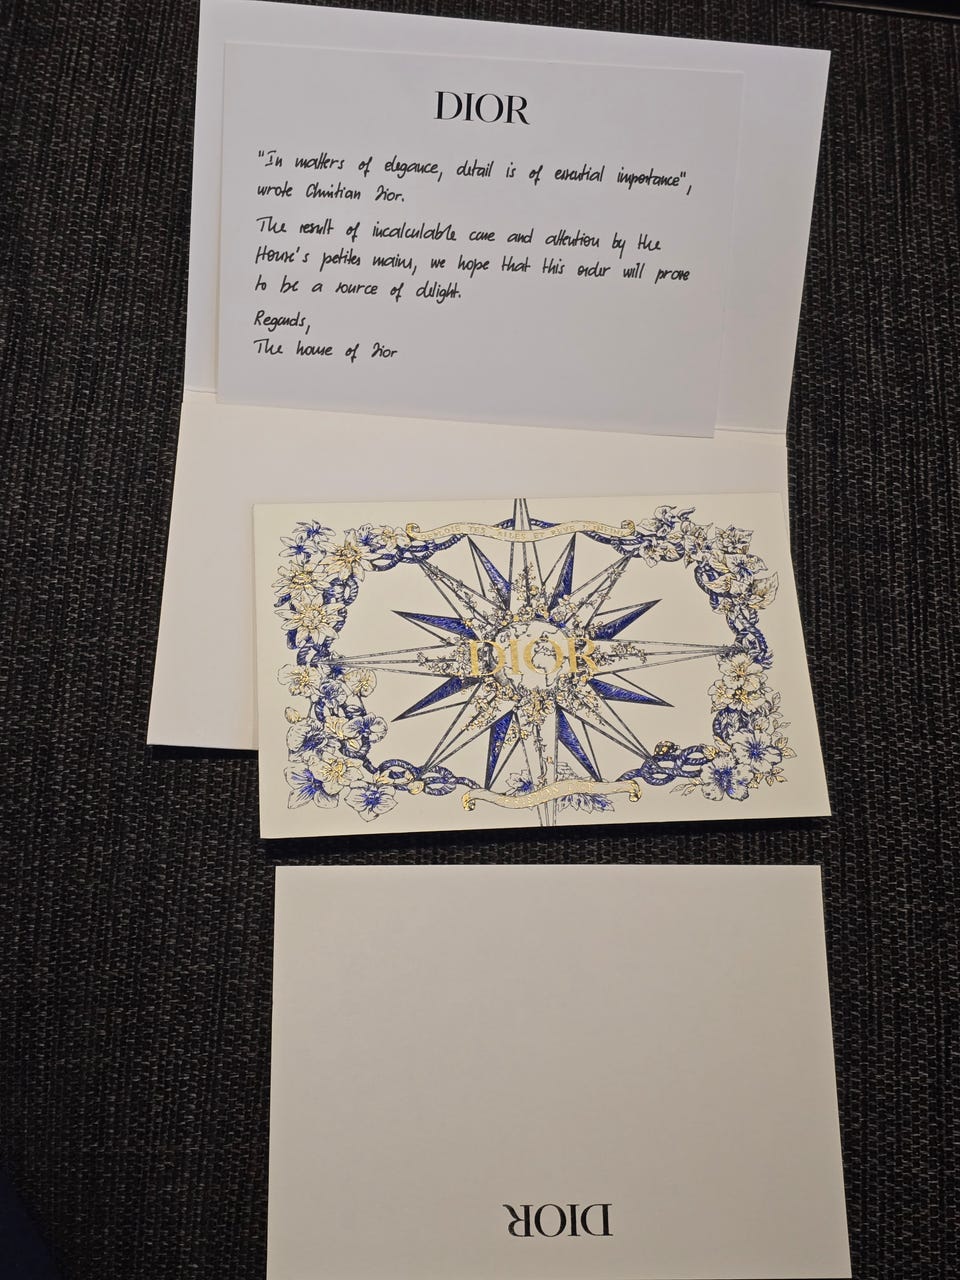 DIOR
"In matters of elegance, detail is of essential importance",
wrote Christian Dior.
The result of incalculable care and attention by the
House's petites mains, we hope that this order will prove
to be a source of delight.
Regards,
The house of Dior
DIOR
DIOR